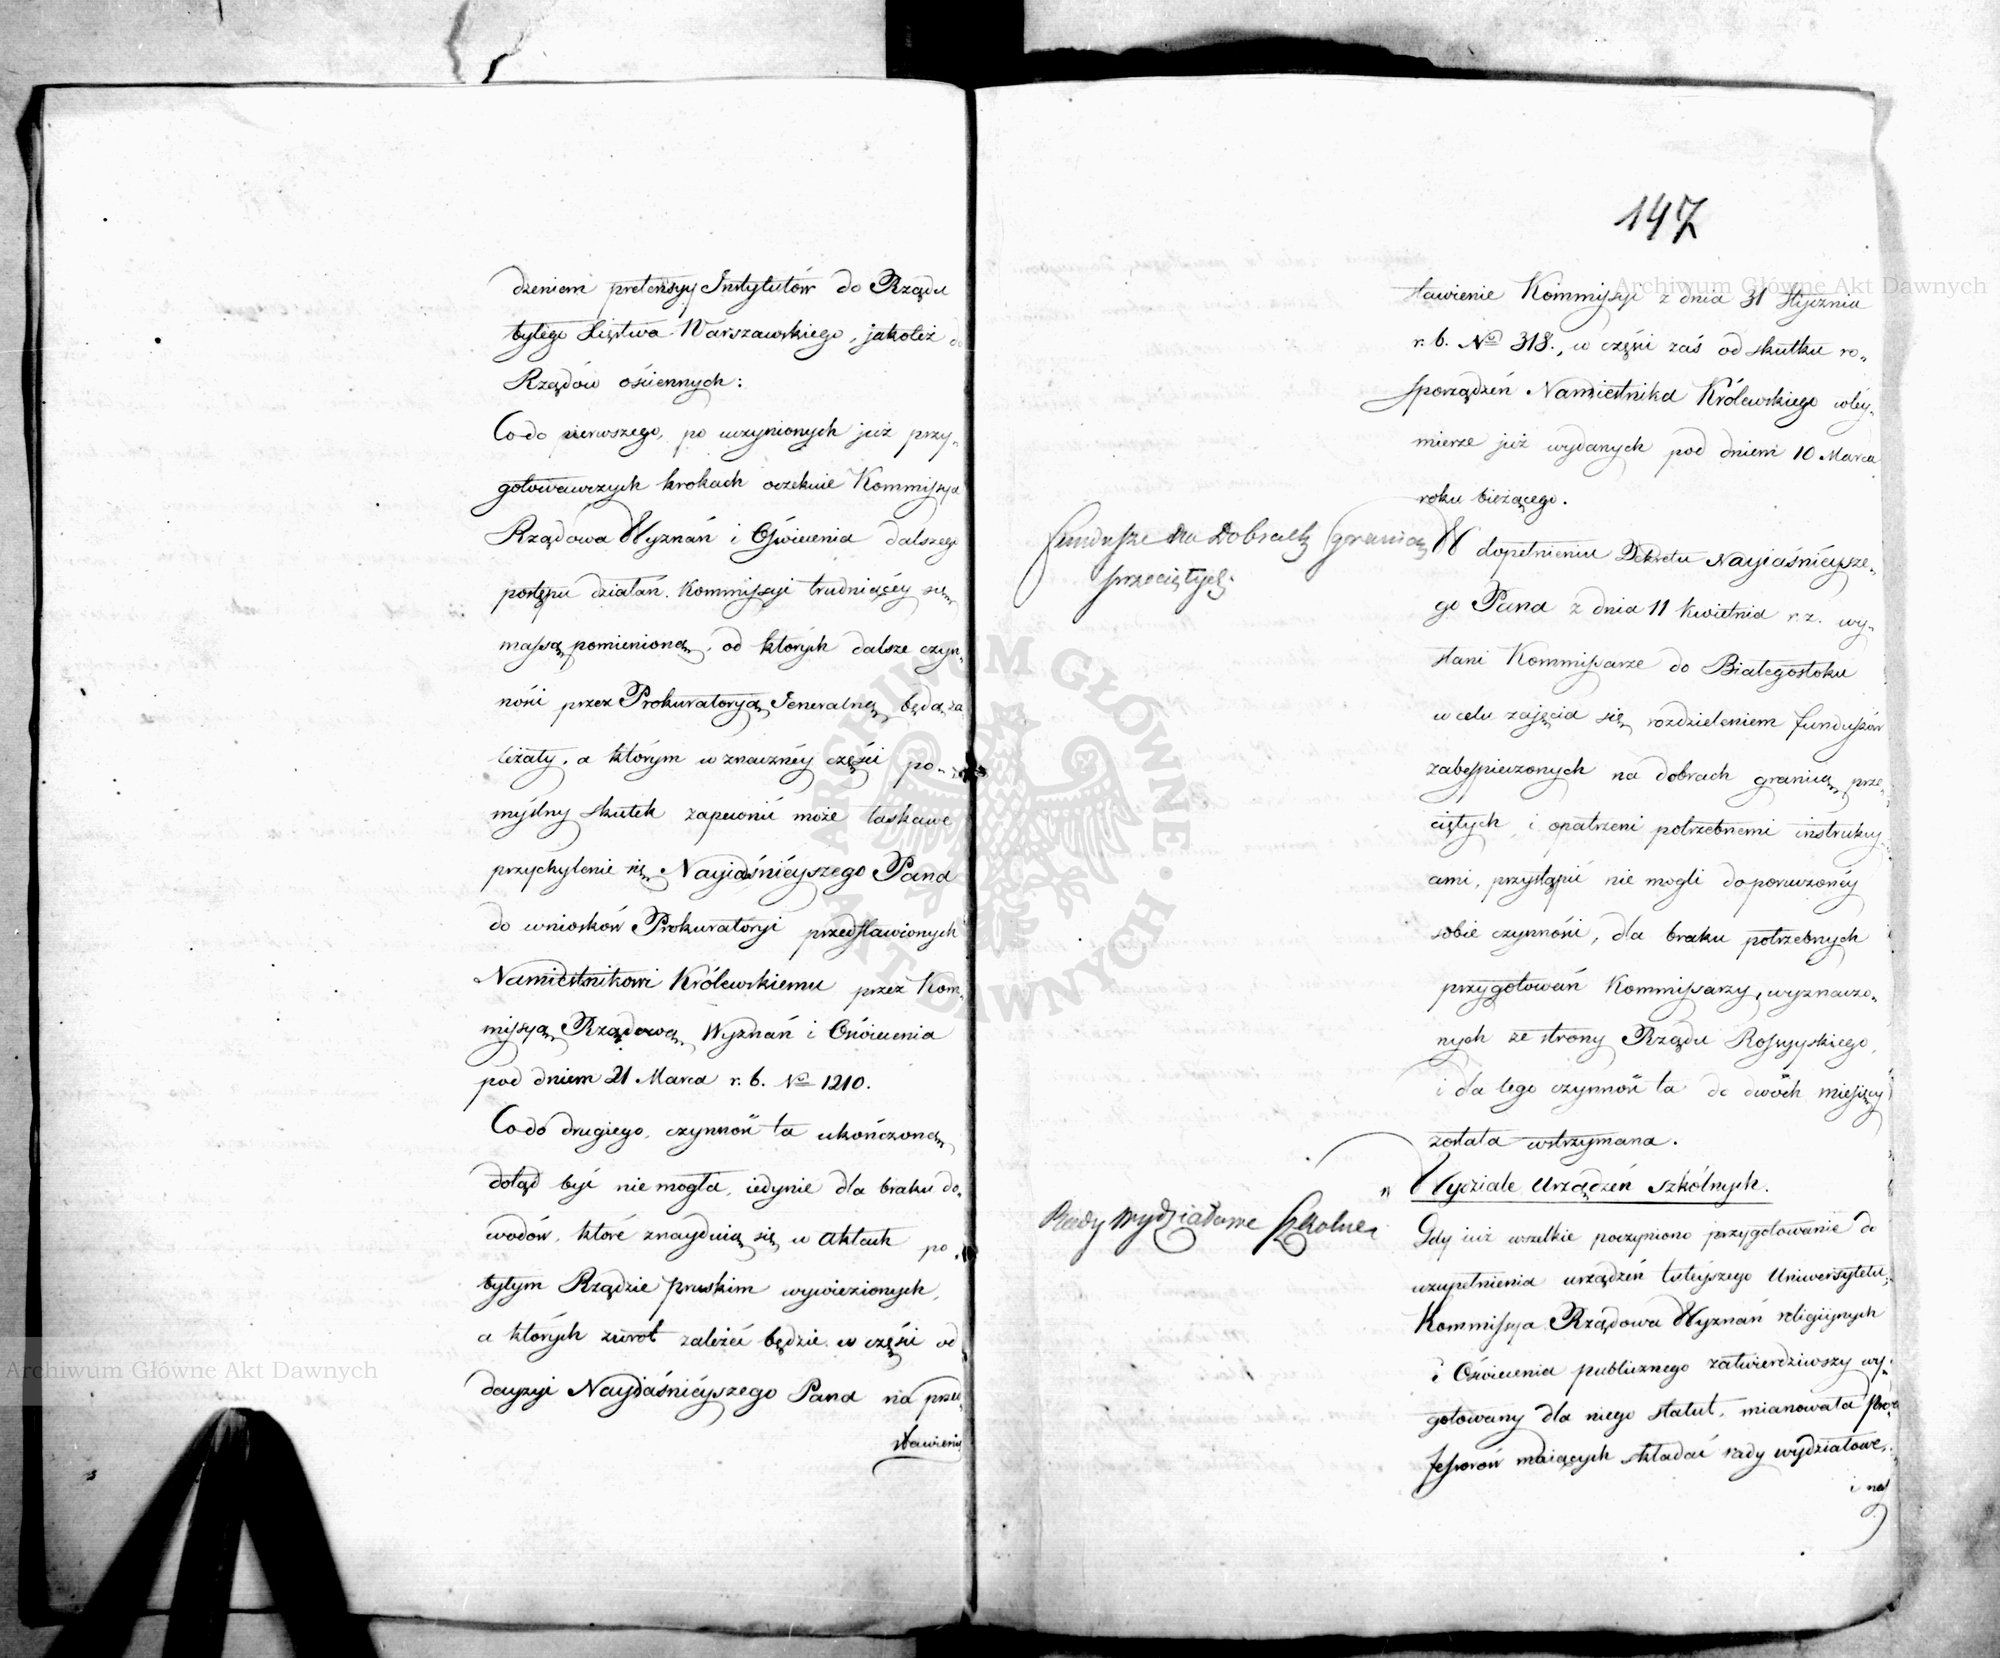 dzeniem pretensyj Instytutów do Rządu
byłego Xięstwa Warszawskiego, jakoteż do
Rządów ościennych:
Co do pierwszego, po uczynionych już przy„
gotowawczych krokach oczekuie Kommissya
Rządowa Wyznań i Oświecenia dalszego
postępu działań Kommissyi trudniącéy się
massą pomienioną, od których dalsze czyn„
ności przez Prokuratoryą Jeneralną będą za
leżały, a którym w znacznéy części po„
myślny skutek zapewnić może łaskawe
przychylenie się Nayiaśniéyszego Pana
do wniosków Prokuratoryi przedstawionych
Namiestnikowi Królewskiemu przez Kom„
missyą Rządową Wyznań i Oświecenia
pod dniem 21 Marca r. b. No 1210.
Co do drugiego, czynność ta ukończoną
dotąd być nie mogła, iedynie dla braku do„
wodów, które znayduią się w Aktach po
byłym Rządzie pruskim wywiezionych,
a których zwrot zależeć będzie w części od
decyzyi Nayiaśniéyszego Pana na przed„
stawienie
147
stawienie Kommissyi z dnia 31 Stycznia
r. b. No 318., w części zaś od skutku ro„
sporządzeń Namiestnika Królewskiego w téy„
mierze już wydanych pod dniem 10 Marca
roku bieżącego.
Fundusze na Dobrach Granicą
przeciętych.
W dopełnieniu Dekretu Nayiaśniéysze„
go Pana z dnia 11 Kwietnia r. z. wy„
słani Kommissarze do Białegostoku
w celu zajęcia się rozdzieleniem funduszów
zabespieczonych na dobrach granicą prze„
ciętych i opatrzeni potrzebnemi instrukcy„
ami, przystąpić nie mogli do poruczonéy
sobie czynności, dla braku potrzebnych
przygotowań Kommissarzy, wyznaczo„
nych ze strony Rządu Rossyyskiego,
i dla tego czynność ta do dwóch miesięcy
została wstrzymana.
„ Wydziale Urządzeń Szkólnych.
Rady Wydziałowe Szkolne
Gdy iuż wszelkie poczyniono przygotowanie do
uzupełnienia urządzeń tuteyszego Uniwersytetu,
Kommissya Rządowa Wyznań religiynych
i Oświecenia publicznego zatwierdziwszy wy„
gotowany dla niego statut, mianowała Pro„
fessorów maiących składać rady wydziałowe,
i na
Archiwum Główne Akt Dawnych
Archiwum Główne Akt Dawnych
ARCHIWUM GŁÓWNE AKT DAWNYCH